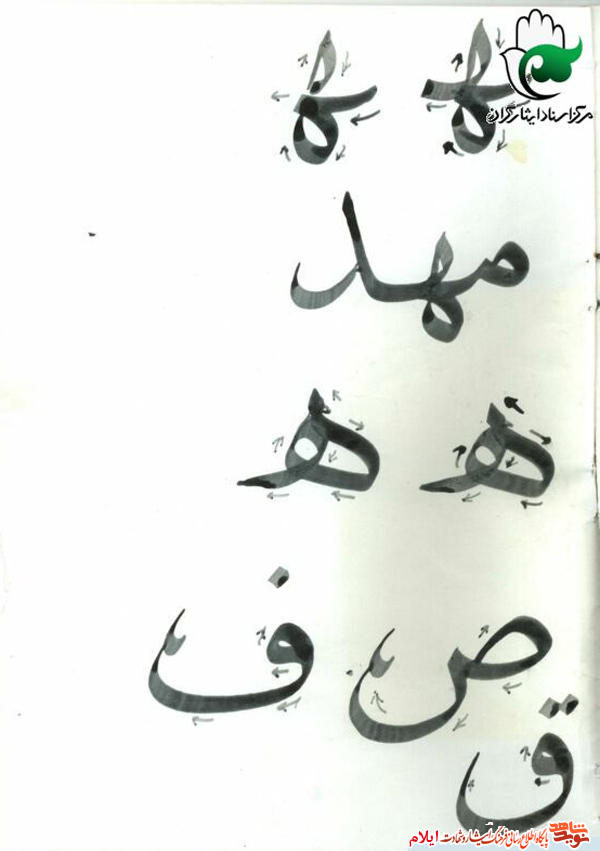 مرکز اسناد ایثارگران
ـهـ ـهـ
مهد
هـ هـ
ص ف
ق
نوید شاهد پایگاه اطلاع رسانی فرهنگ ایثار و شهادت ایلام